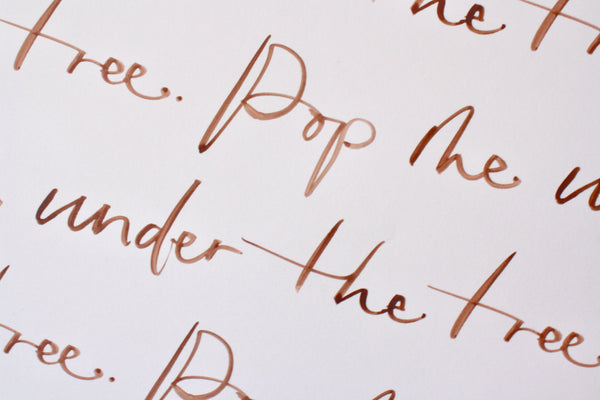 the tr
tree. Pop me u
under the tree
ree. Po